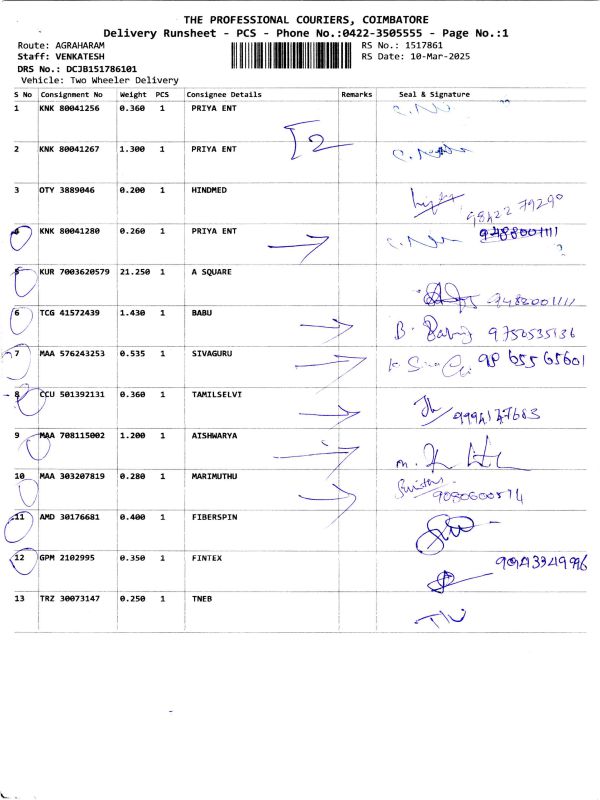 THE PROFESSIONAL COURIERS, COIMBATORE
Delivery Runsheet - PCS - Phone No.:0422-3505555 - Page No.:1
Route: AGRAHARAM RS No.: 1517861
Staff: VENKATESH RS Date: 10-Mar-2025
DRS No.: DCJB151786101
Vehicle: Two Wheeler Delivery
S No Consignment No Weight PCS Consignee Details Remarks Seal & Signature
1 KNK 80041256 0.360 1 PRIYA ENT
2 KNK 80041267 1.300 1 PRIYA ENT
3 OTY 3889046 0.200 1 HINDMED
98422 79290
4 KNK 80041280 0.260 1 PRIYA ENT
5 KUR 7003620579 21.250 1 A SQUARE
9482001111
6 TCG 41572439 1.430 1 BABU
B. Babu 9750535136
7 MAA 576243253 0.535 1 SIVAGURU
98 655 65601
8 CCU 501392131 0.360 1 TAMILSELVI
9 MAA 708115002 1.200 1 AISHWARYA
10 MAA 303207819 0.280 1 MARIMUTHU
11 AMD 30176681 0.400 1 FIBERSPIN
12 GPM 2102995 0.350 1 FINTEX
13 TRZ 30073147 0.250 1 TNEB